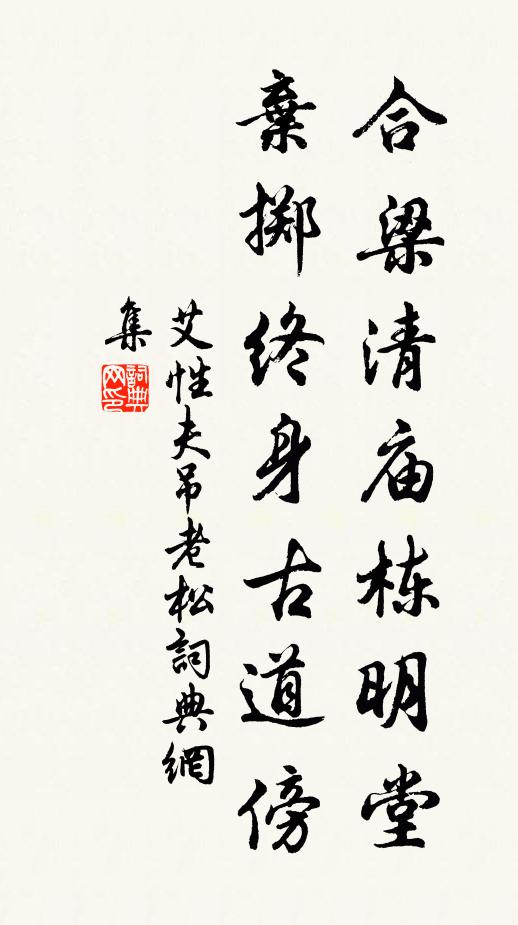 合梁清庙栋明堂
棄掷终身古道傍
艾性夫吊老松詞典網
集
詞典网印